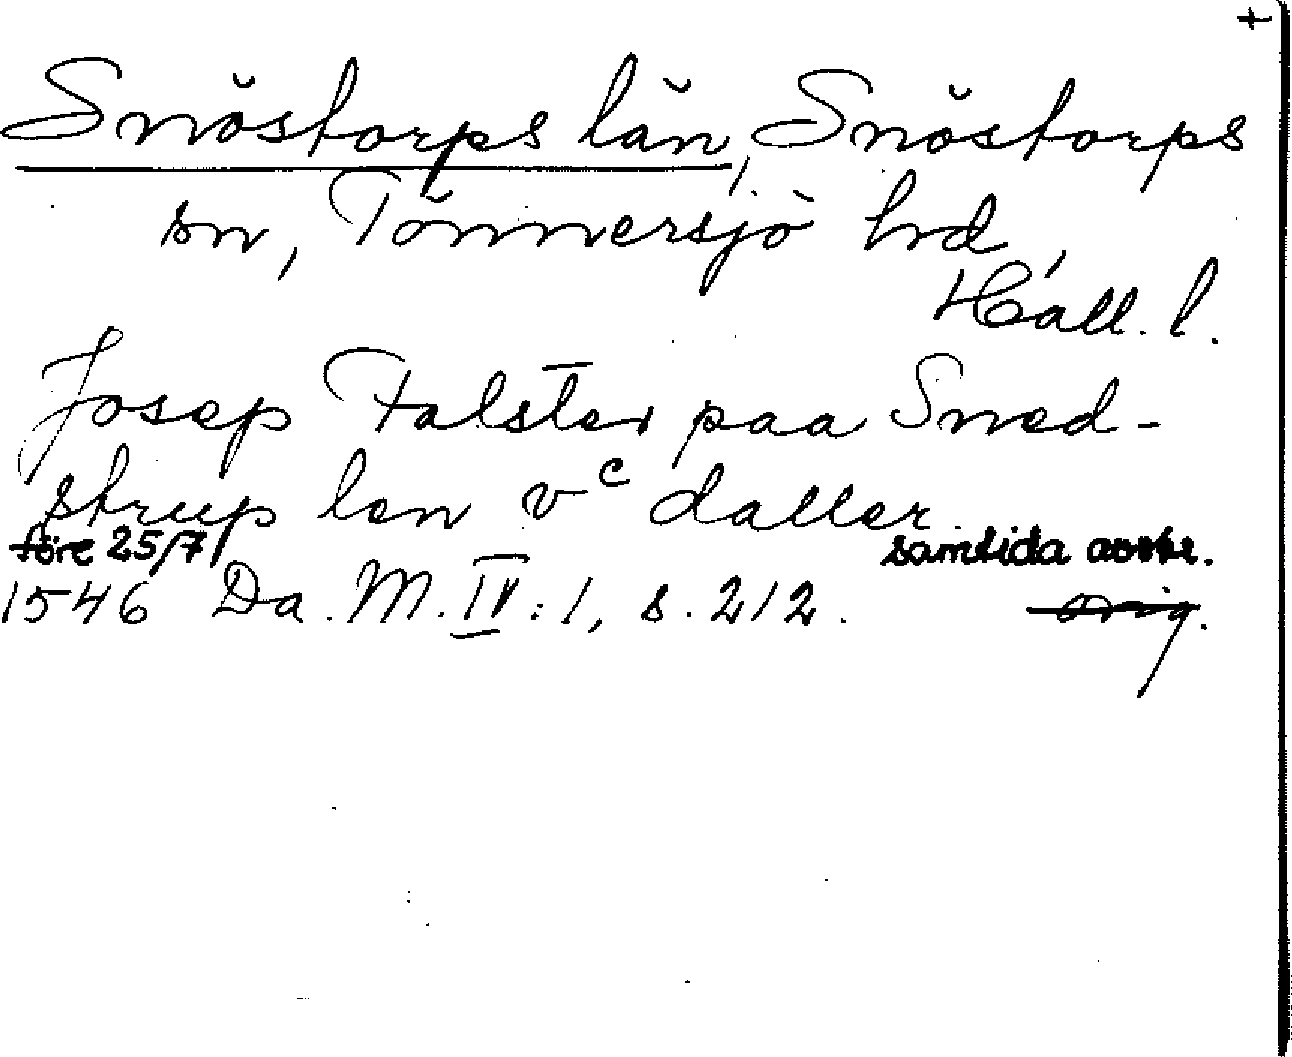 +
Snöstorps län, Snöstorps
sn, Tönnersjö hd,
Hall. l.
Josep Falster paa Sned-
strup len vᶜ daller
före 25/7 samtida avskr.
1546 Da. M. IV: 1, s. 212. orig.